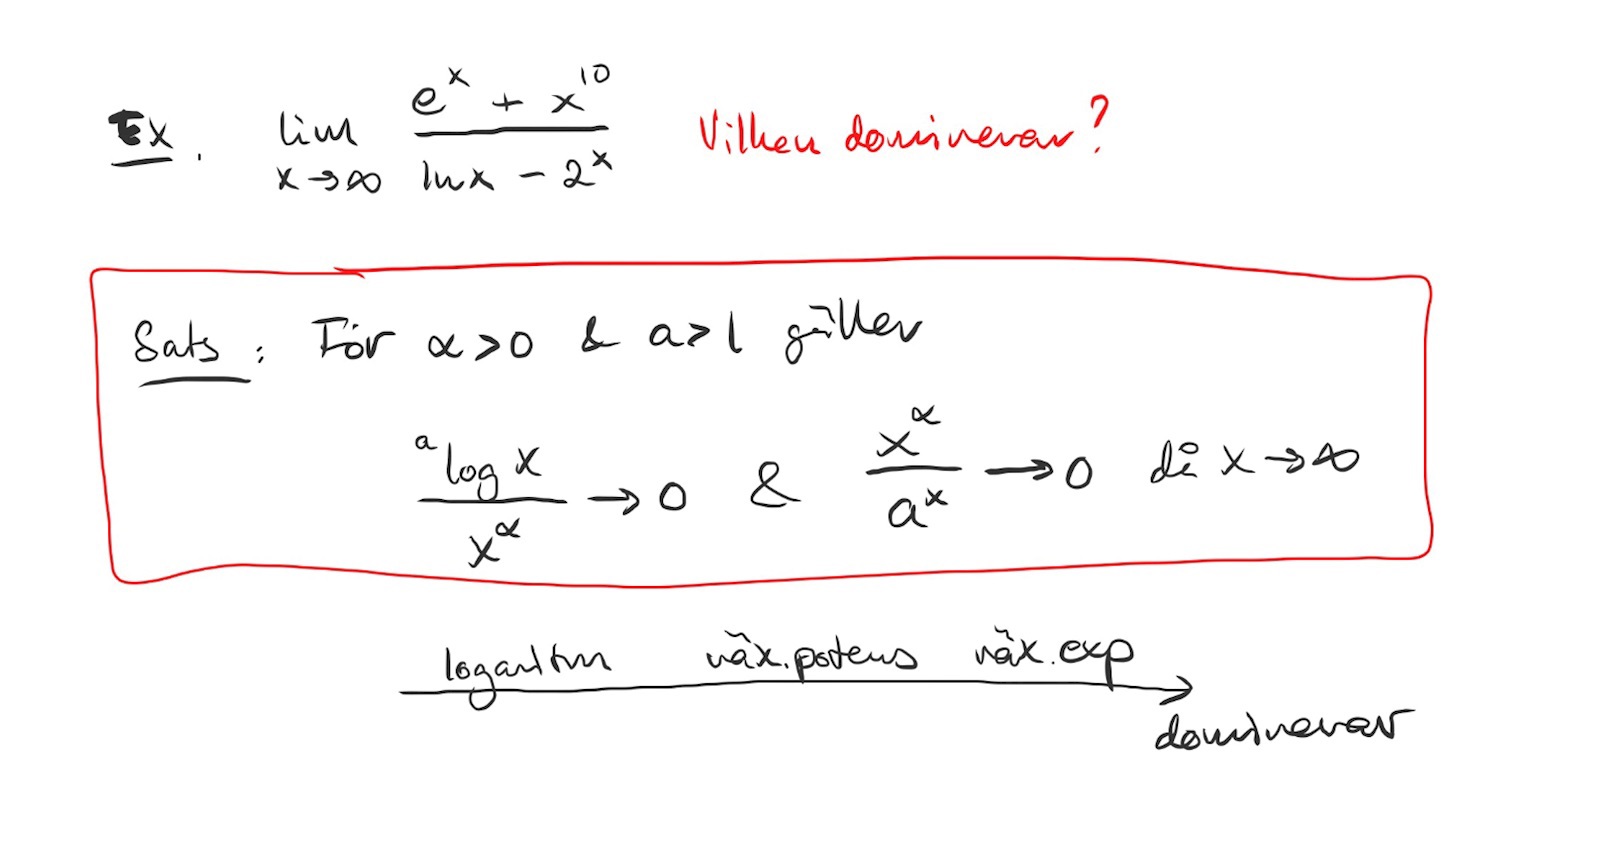 Ex. lim x→∞ (e^x + x^10)/(ln x − 2^x) Vilken dominerar?
Sats: För α>0 & a>1 gäller
ᵃlog x / x^α → 0 & x^α / a^x → 0 då x→∞
logaritm väx.potens väx.exp
dominerar